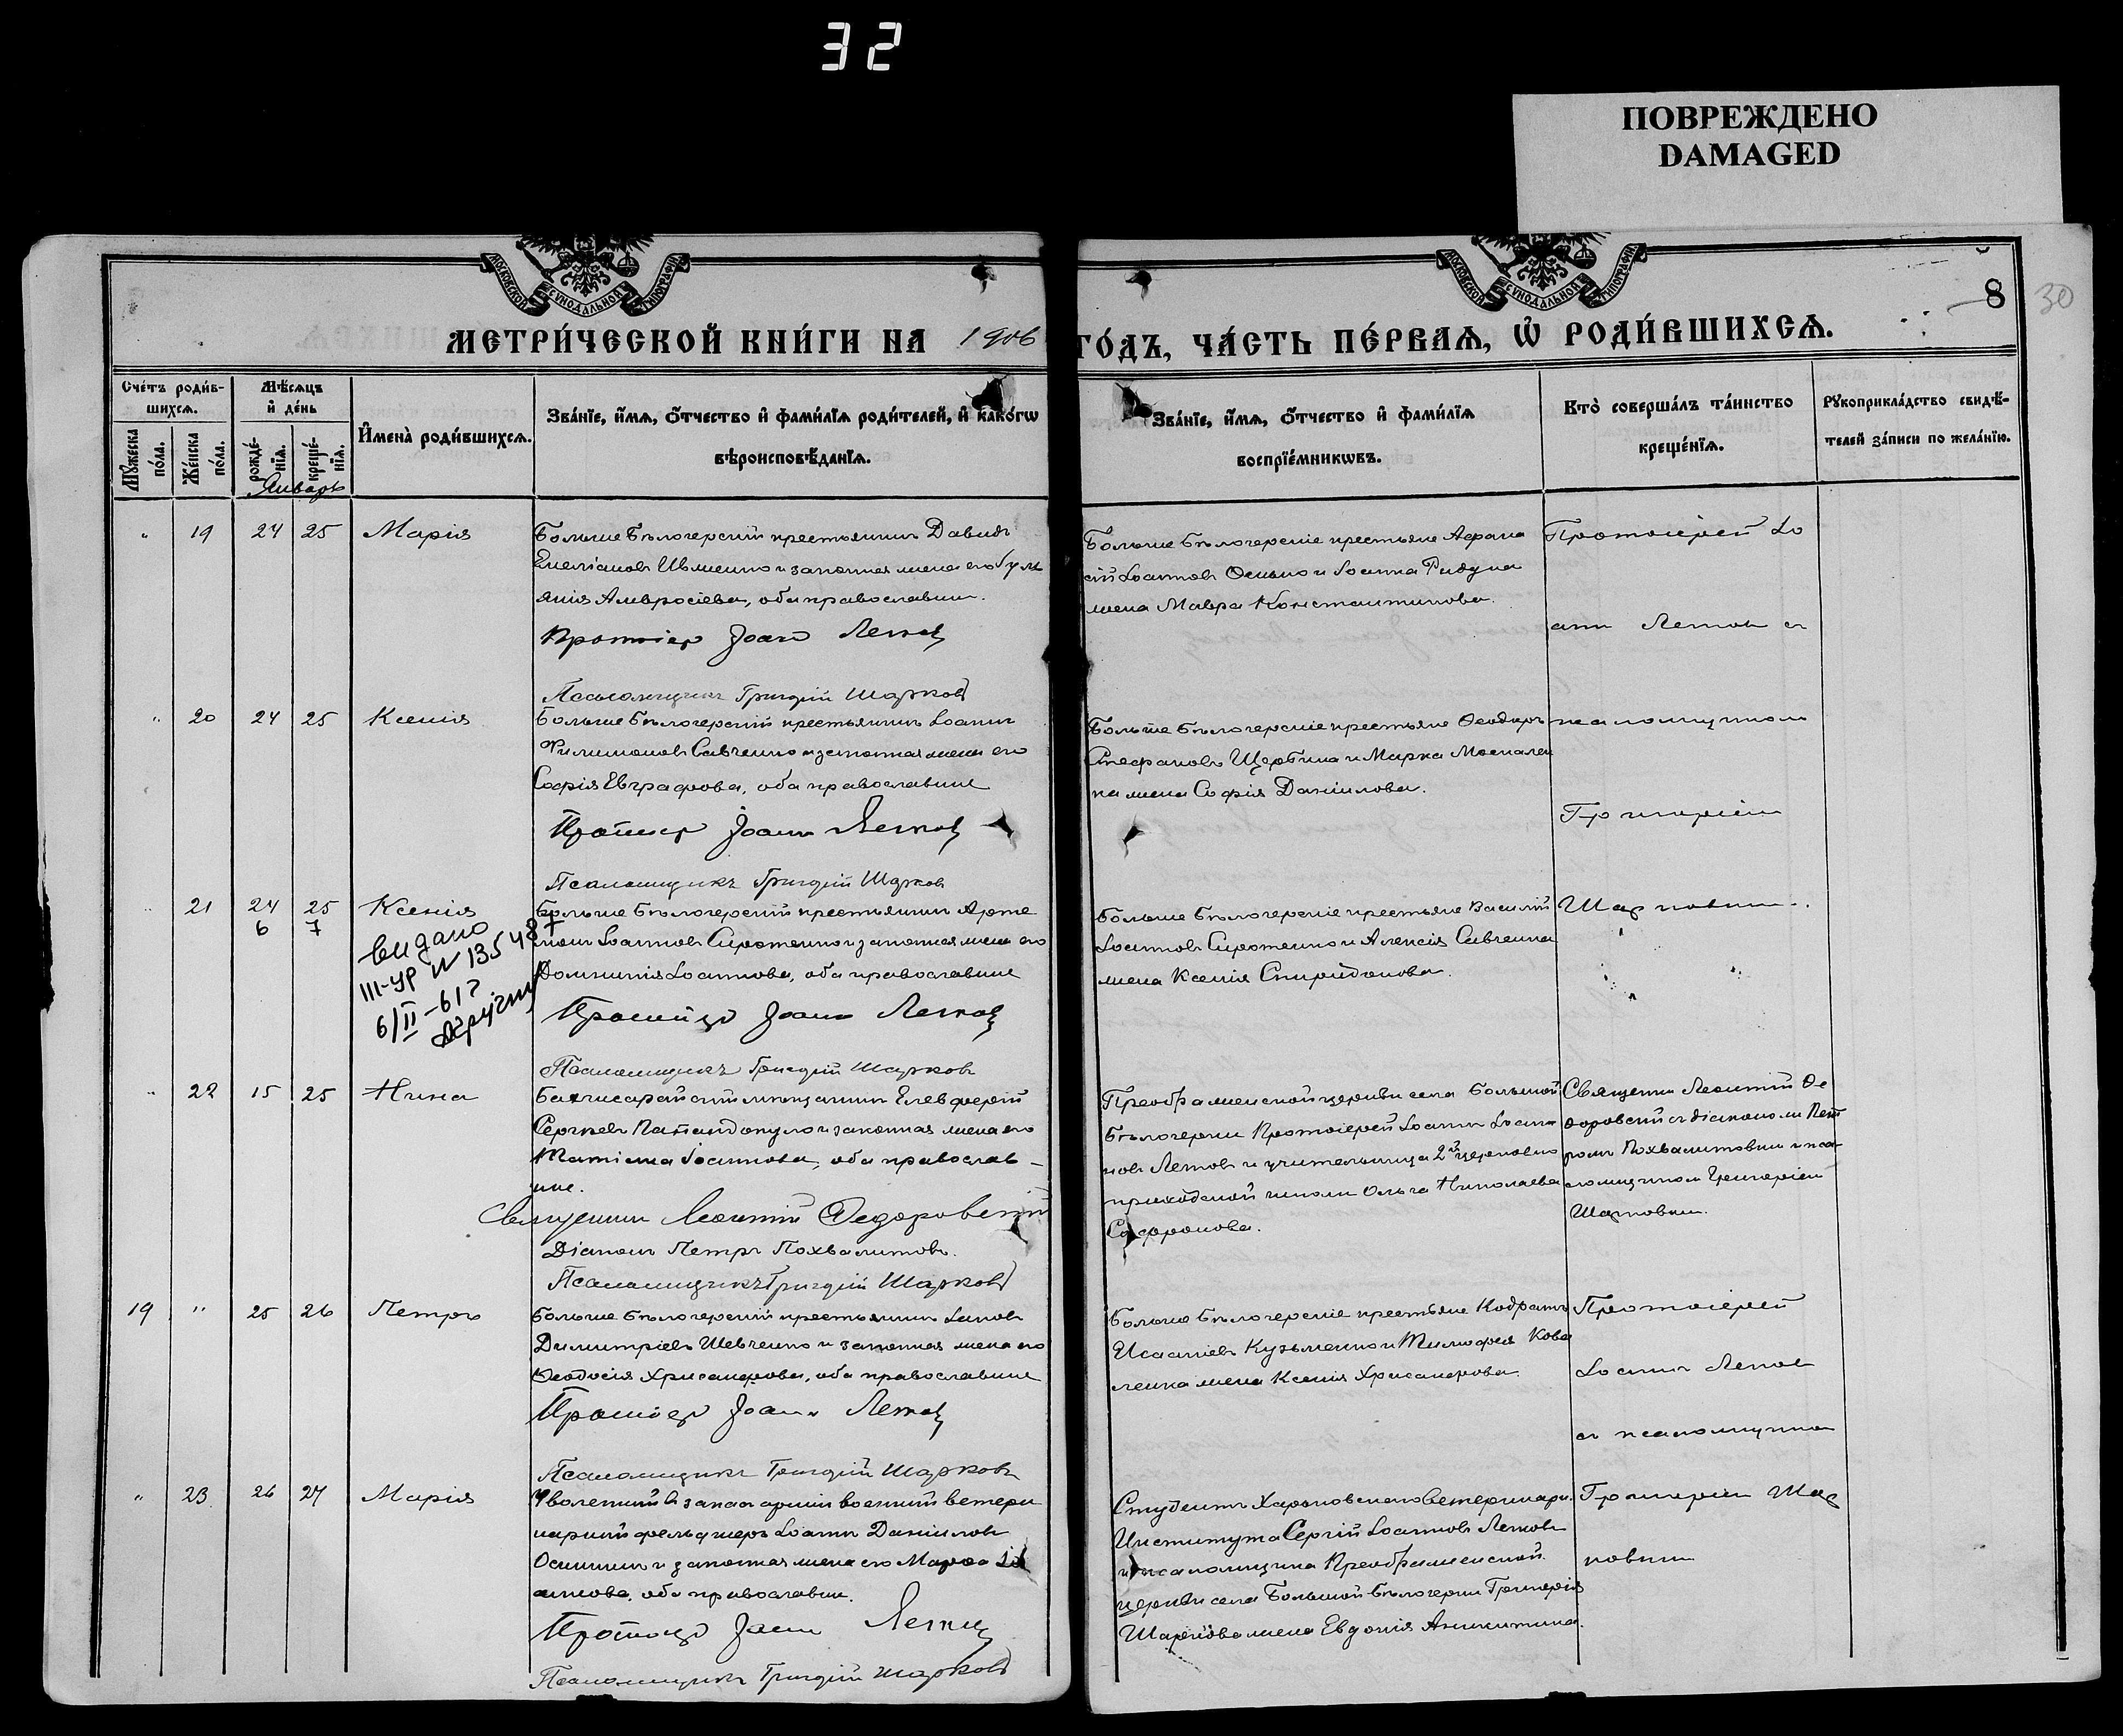 32
ПОВРЕЖДЕНО
DAMAGED
МОСКОВСКОЙ СУНОДАЛЬНОЙ ТИПОГРАФІИ
МОСКОВСКОЙ СУНОДАЛЬНОЙ ТИПОГРАФІИ
8 30
МЕТРИ́ЧЕСКОЙ КНИ́ГИ НА 1906 ГО́ДЪ, ЧА́СТЬ ПЕ́РВАѦ, Ѡ҆ РОДИ́ВШИХСѦ.
Сче́тъ роди́в-
шихсѧ.
Мꙋжеска по́ла.
Же́нска по́ла.
Мѣ́сѧцъ
и҆ де́нь
рожде́-
нїѧ.
креще́-
нїѧ.
Январь
И҆мена̀ роди́вшихсѧ.
Зва́нїе, и҆́мѧ, ѻ҆́тчество и҆ фами́лїѧ роди́телей, и҆ како́гѡ
вѣроисповѣ́данїѧ.
Зва́нїе, и҆́мѧ, ѻ҆́тчество и҆ фами́лїѧ
воспрїе́мникѡвъ.
Кто̀ соверша́лъ та́инство
креще́нїѧ.
Рꙋкоприкла́дство свидѣ́-
телей за́писи по жела́нїю.
" 19 24 25 Марія
Больше Бѣлозерскій крестьянинъ Давидъ
Емеліановъ Ивченко и законная жена его Іули
анія Амвросіева, оба православные.
Протоіер Іоанн Летов
Псаломщикъ Григорій Шарковъ
Больше Бѣлозерскіе крестьяне Афана
сій Іоанновъ Оснько и Іоанна Ридуна
жена Мавра Константинова.
Протоіерей Іо
аннъ Летовъ съ
" 20 24 25 Ксенія
Больше Бѣлозерскій крестьянинъ Іоаннъ
Филимоновъ Савченко и законная жена его
Софія Евграфова, оба православные
Протоіер Іоаннъ Летовъ
Псаломщикъ Григорій Шарков
Больше Бѣлозерскіе крестьяне Ѳеодоръ
Стефановъ Щербина и Марка Москален
ка жена Софія Даніилова.
псаломщикомъ
Григоріемъ
" 21 24 25 Ксенія
6 7
Видано
III-УР № 135487
6/II-61 г
Больше Бѣлозерскій крестьянинъ Арте
монъ Іоанновъ Сиротенко и законная жена его
Домникія Іоаннова, оба православные
Протоіер Іоанн Летовъ
Псаломщикъ Григорій Шарковъ
Больше Бѣлозерскіе крестьяне Василій
Іоанновъ Сиротенко и Алексія Савченка
жена Ксенія Спиридонова.
Шарковым.
" 22 15 25 Нина
Бахчисарайскій мѣщанинъ Елевферій
Сергѣевъ Папандопуло и законная жена его
Татіана Іоаннова, оба православ-
ные.
Священникъ Леонтій Федоровскій
Діаконъ Петръ Похвалитовъ.
Псаломщикъ Григорій Шарковъ
Преображенской церкви села Большой
Бѣлозерки Протоіерей Іоаннъ Іоан
новъ Летовъ и учительница 2й церковно
приходской школы Ольга Николаева
Сафронова.
Священникъ Леонтій Ѳе
доровскій съ діакономъ Пет
ромъ Похвалитовым и пса
ломщиком Григоріем
Шарковым.
19 " 25 26 Петръ
Больше Бѣлозерскій крестьянинъ Іаковъ
Димитріевъ Шевченко и законная жена его
Ѳеодосія Хрисанфова, оба православные
Протоіер Іоанн Летовъ
Псаломщикъ Григорій Шарковъ
Больше Бѣлозерскіе крестьяне Кодратъ
Исаакіевъ Кузьменко и Тимофея Кова
ленка жена Ксенія Хрисанфова.
Протоіерей
Іоаннъ Летов
съ псаломщиком
" 23 26 27 Марія
Уволенный въ запас арміи военный ветери
нарный фельдшеръ Іоаннъ Данііловъ
Осинин и законная жена его Марѳа Іо
аннова, оба православные.
Протоіер Іоанн Летовъ
Псаломщикъ Григорій Шарковъ
Студентъ Харьковскаго Ветеринарн.
Института Сергій Іоанновъ Летовъ
и псаломщика Преображенской
церкви села Большой Бѣлозерки Григорія
Шаркова жена Евдокія Аникитина.
Григоріем Шар
ковым